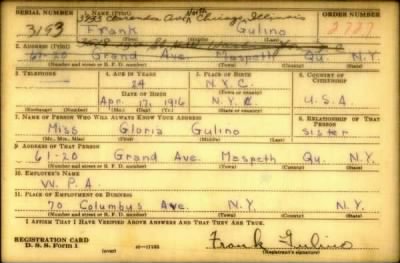 SERIAL NUMBER 1. NAME (Print) ORDER NUMBER
Chicago, Illinois
3193 Frank Gulino 2727
(First) (Middle) (Last)
2. ADDRESS (Print)
61-20 Grand Ave. Maspeth Qu. N.Y.
(Number and street or R. F. D. number) (Town) (County) (State)
3. TELEPHONE 4. AGE IN YEARS 5. PLACE OF BIRTH 6. COUNTRY OF CITIZENSHIP
24 N.Y.C.
DATE OF BIRTH (Town or county)
Apr. 17, 1916 N.Y. U.S.A.
(Exchange) (Number) (Mo.) (Day) (Yr.) (State or country)
7. NAME OF PERSON WHO WILL ALWAYS KNOW YOUR ADDRESS 8. RELATIONSHIP OF THAT PERSON
Miss Gloria Gulino Sister
(Mr., Mrs., Miss) (First) (Middle) (Last)
9. ADDRESS OF THAT PERSON
61-20 Grand Ave. Maspeth Qu. N.Y.
(Number and street or R. F. D. number) (Town) (County) (State)
10. EMPLOYER'S NAME
W.P.A.
11. PLACE OF EMPLOYMENT OR BUSINESS
70 Columbus Ave. N.Y. N.Y.
(Number and street or R. F. D. number) (Town) (County) (State)
I AFFIRM THAT I HAVE VERIFIED ABOVE ANSWERS AND THAT THEY ARE TRUE.
REGISTRATION CARD
D. S. S. Form 1 (over) Frank Gulino
(Registrant's signature)